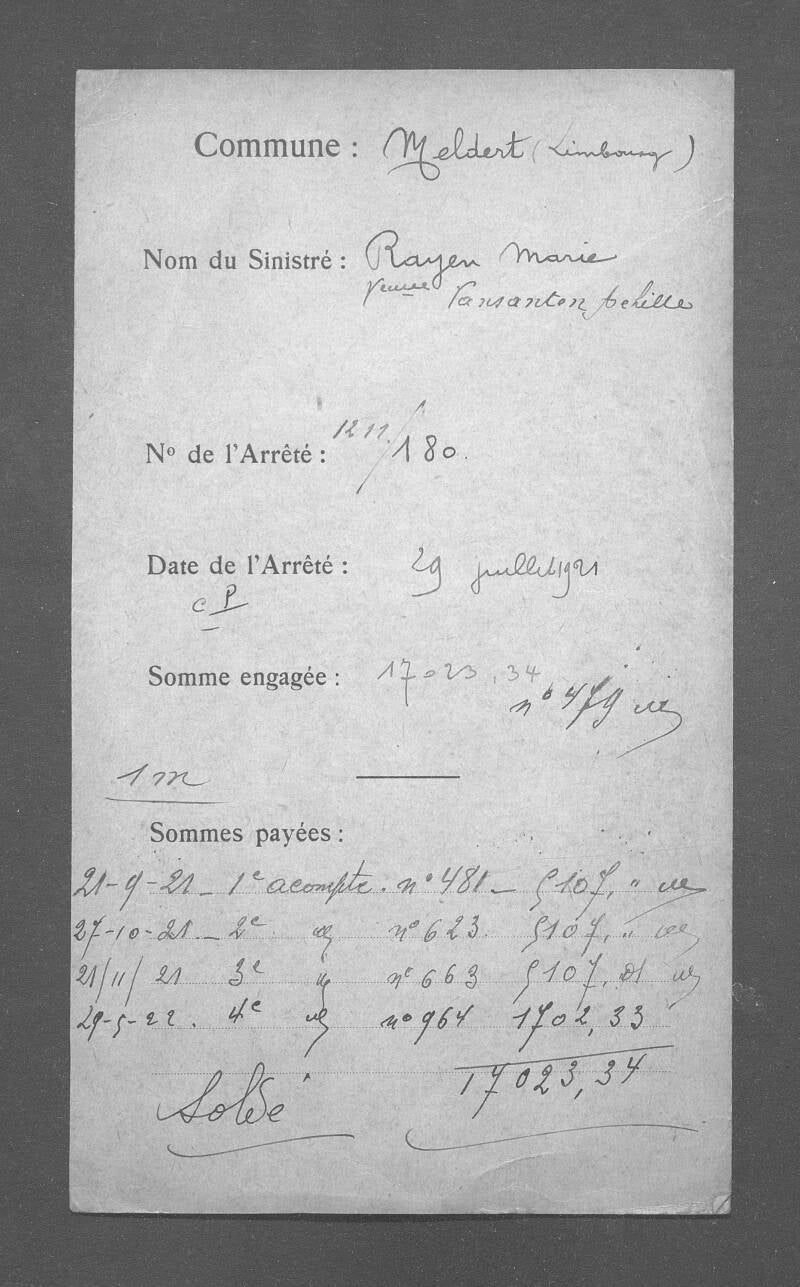 Commune : Meldert (Limbourg)
Nom du Sinistré : Rayen Marie
Veuve Vansanten Achille
Nº de l'Arrêté : 1211/180.
Date de l'Arrêté : 29 juillet 1921
c P
Somme engagée : 17023,34
nº 479
1 m
Sommes payées :
21-9-21 - 1e acompte. nº 481 - 5107, "
27-10-21 - 2e nº 623. 5107, "
21/11/21 3e nº 663 5107, 01
29-5-22. 4e nº 964 1702,33
17023,34
Solde